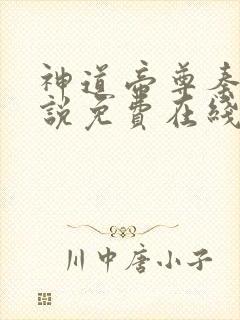 神道帝尊秦
說免費在綫
川中唐小子